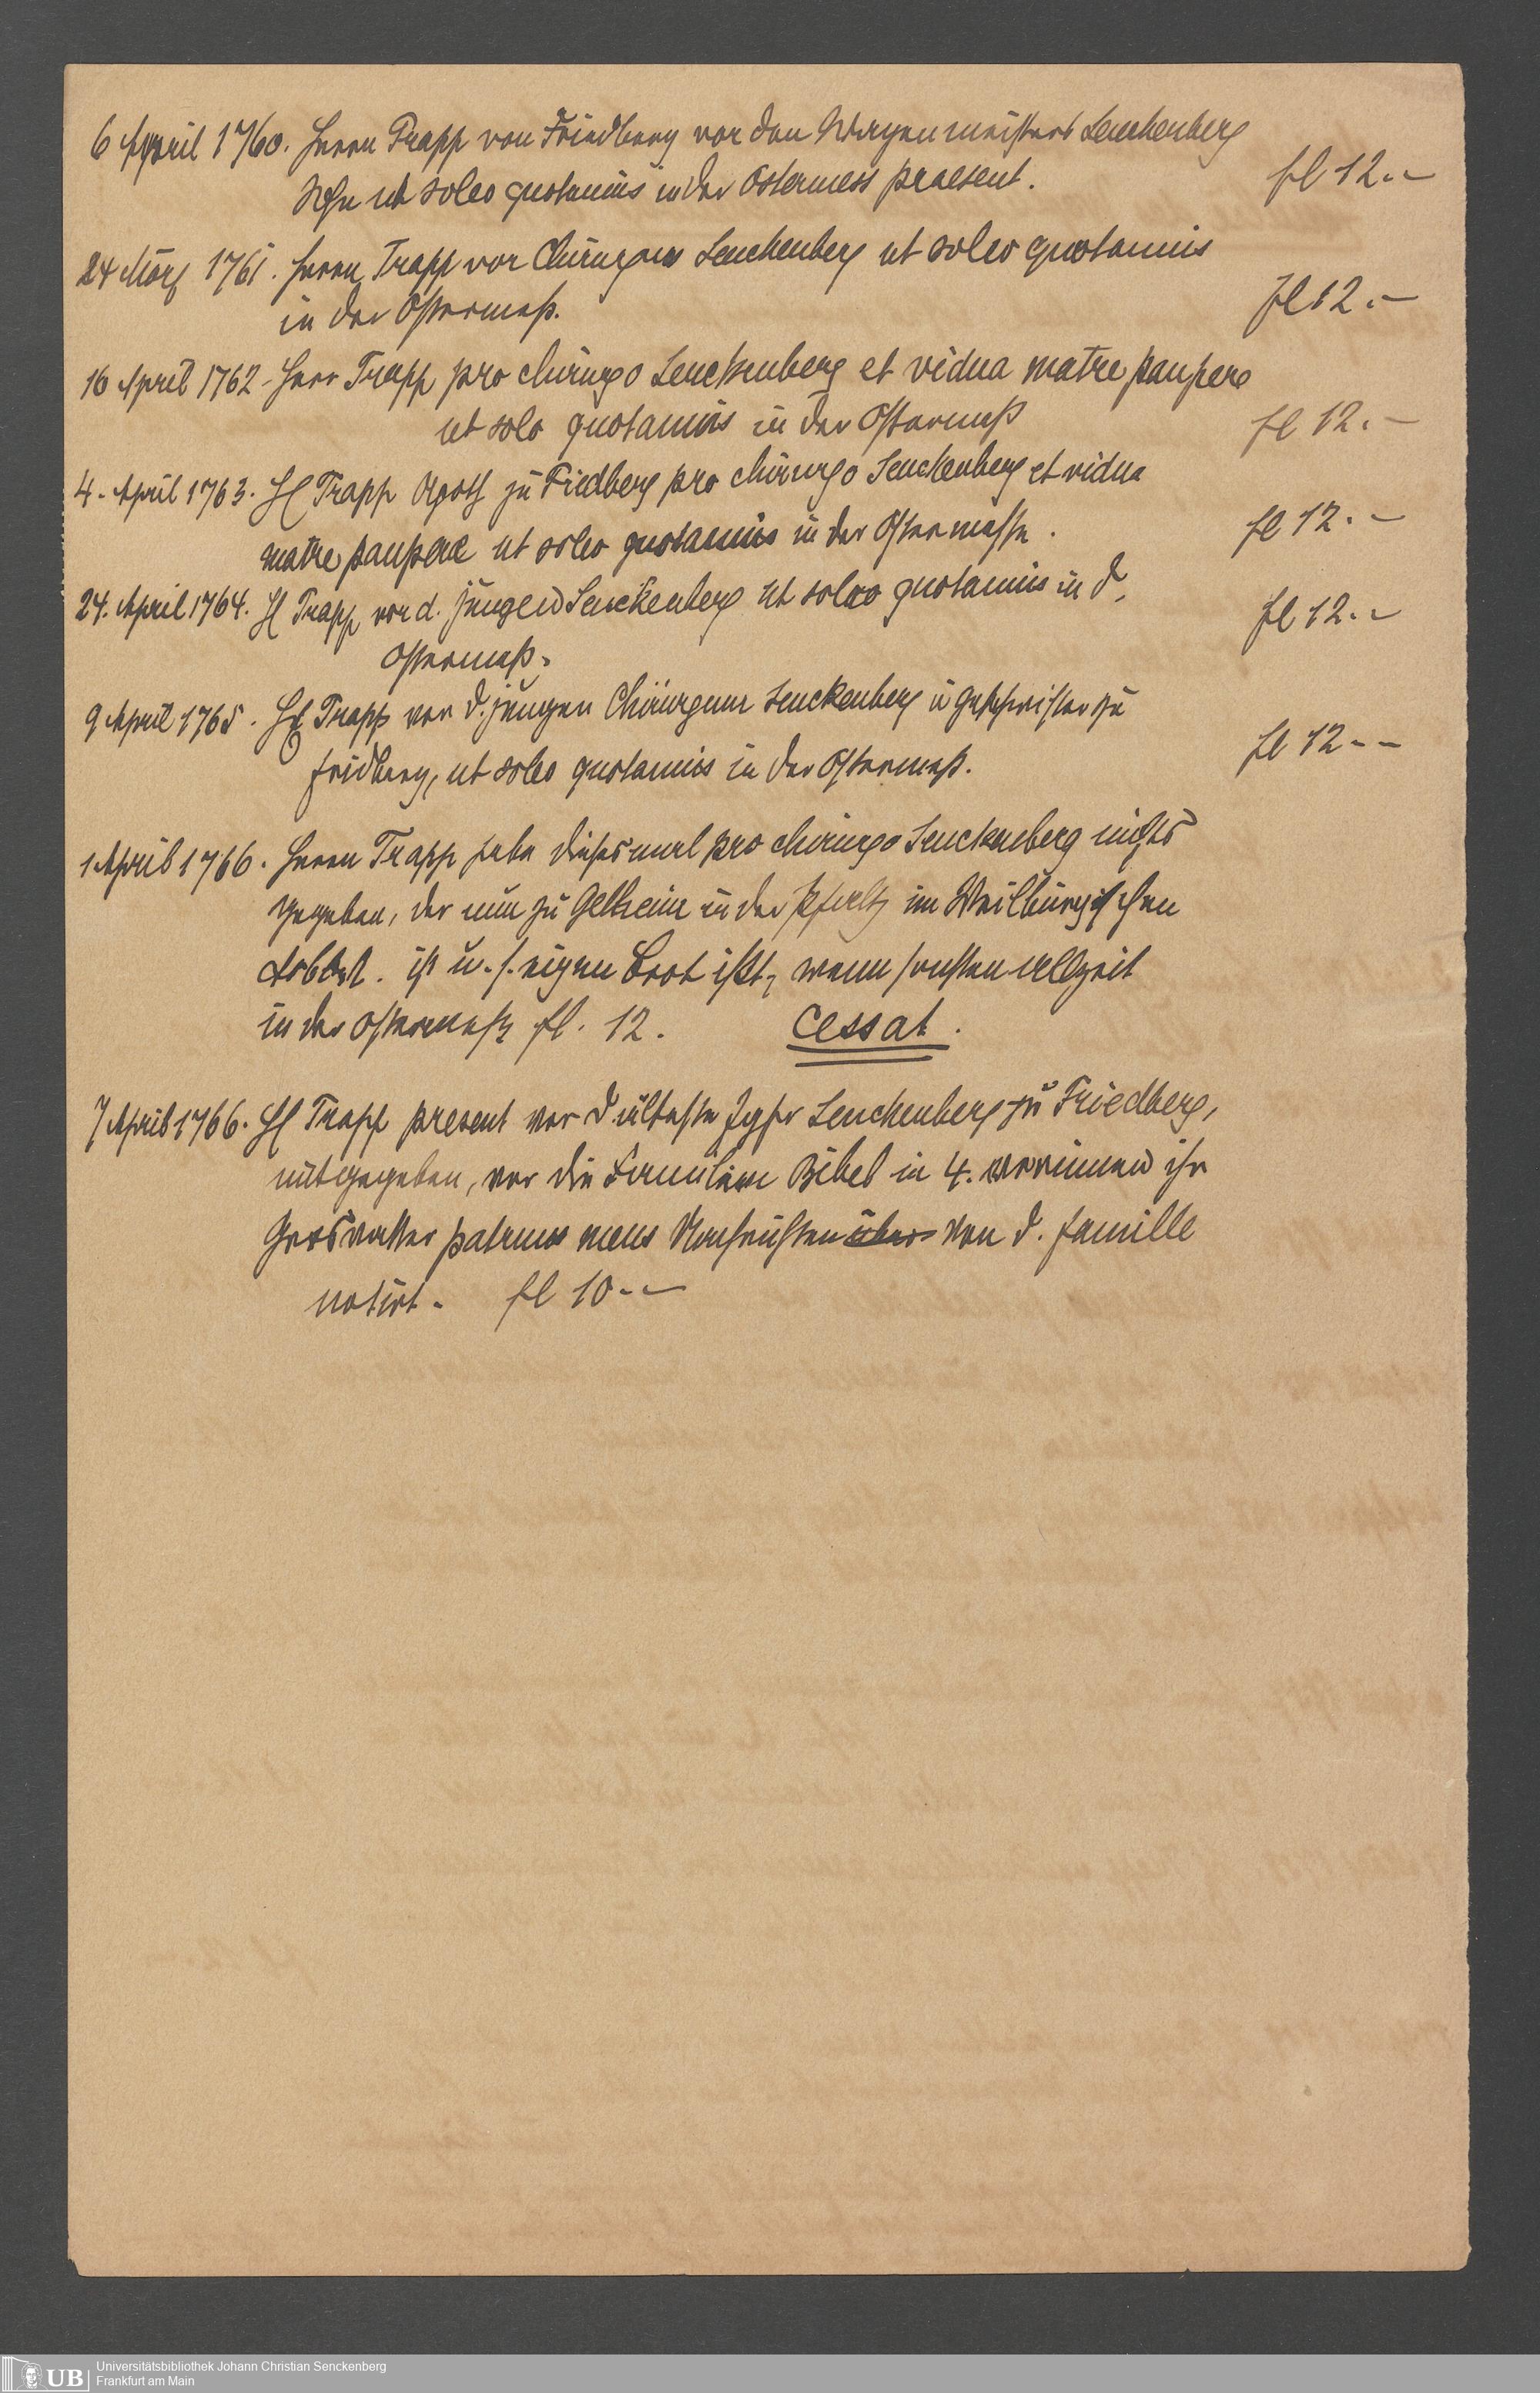 6 April 1760. Herrn Trapp von Friedberg vor den Wagenmeisters Senckenberg
Sohn ut soleo quotannis in der Ostermess praesent. fl 12.–
24 März 1761. Herrn Trapp vor Chirurgus Senckenberg ut soleo quotannis
in der Ostermeß. fl 12.–
16 April 1762 - Herr Trapp pro chirurgo Senckenberg et vidua matre paupere
ut solo quotannis in der Ostermeß fl 12.–
4. April 1763. H Trapp Apoth zu Fridberg pro chirurgo Senckenberg et vidua
matre paupere ut soleo quotannis in der Ostermesse. fl 12.–
24. April 1764. H Trapp vor d. jungen Senckenberg ut soleo quotannis in d. fl 12.–
Ostermeß.
9 April 1765. H Trapp vor d. jungen Chirurgum Senckenberg u Geschwister zu
Fridberg, ut soleo quotannis in der Ostermeß. fl 12.–
1 April 1766. Herrn Trapp habe diesesmal pro chirurgo Senckenberg nichts
gegeben, der nun zu Gelheim in der Pfaltz im Weilburgischen
ist u. s. eigen Brot ißt, wenn sonsten allzeit
in der Ostermeß fl. 12. Cessat.
7 April 1766. H Trapp present vor d. älteste Jgfr Senckenberg zu Friedberg,
mitgegeben, vor die Familien Bibel in 4. worinnen ihr
Grosvatter patruus meus Nachrichten über von d. Famille
notirt. fl 10.–
Universitätsbibliothek Johann Christian Senckenberg
Frankfurt am Main
UB